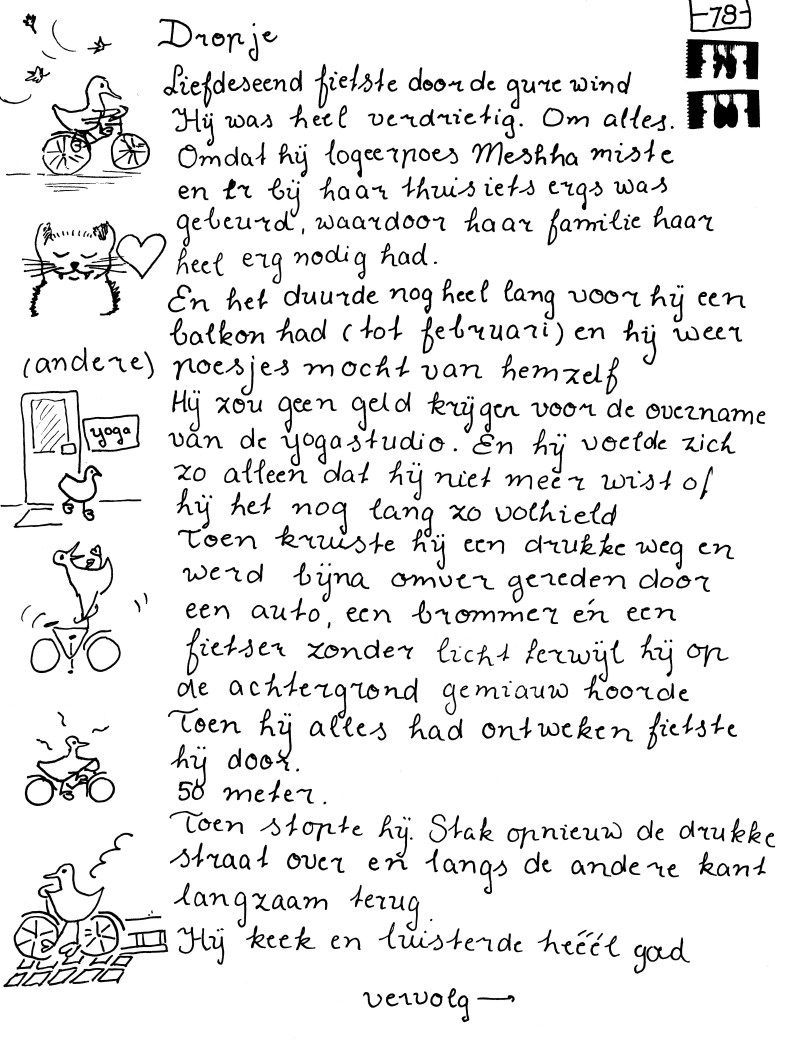 -78-
Dropje
Liefdeseend fietste door de gure wind
Hij was heel verdrietig. Om alles.
Omdat hij logeerpoes Meshka miste
en er bij haar thuis iets ergs was
gebeurd, waardoor haar familie haar
heel erg nodig had.
En het duurde nog heel lang voor hij een
balkon had (tot februari) en hij weer
(andere) poesjes mocht van hemzelf
Hij zou geen geld krijgen voor de overname
yoga
van de yogastudio. En hij voelde zich
zo alleen dat hij niet meer wist of
hij het nog lang zo volhield
Toen kruiste hij een drukke weg en
werd bijna omver gereden door
een auto, een brommer én een
fietser zonder licht terwijl hij op
de achtergrond gemiauw hoorde
Toen hij alles had ontweken fietste
hij door.
50 meter.
Toen stopte hij. Stak opnieuw de drukke
straat over en langs de andere kant
langzaam terug.
Hij keek en luisterde hééél goed
vervolg →